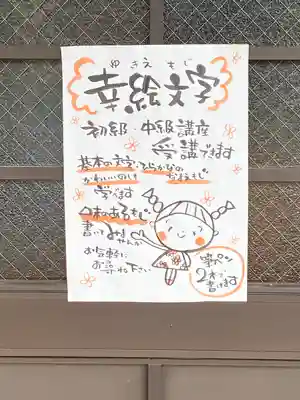 ゆきえもじ
幸絵文字
初級・中級講座
受講できます
基本の文字・ひらがなの
かわいい
学べます
書いてみませんか
お気軽に
お尋ね下さい
筆ペン
2本で
書けます